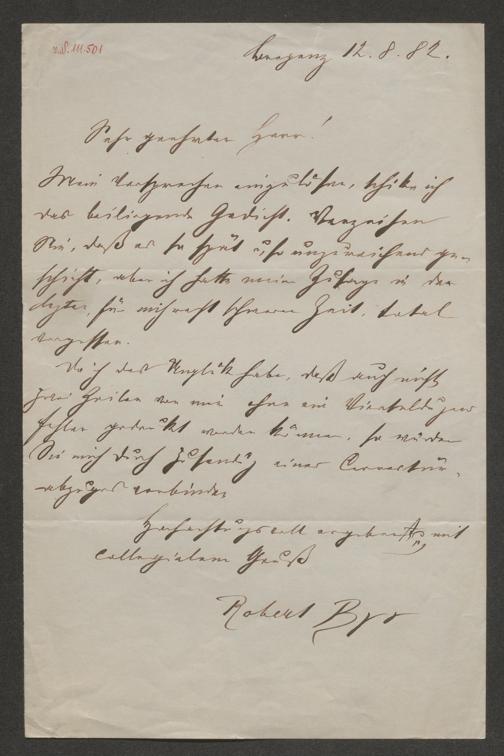 N.S. 111.501
Bregenz 12. 8. 82.
Sehr geehrter Herr!
Mein Versprechen einzulösen, schike ich
das beiliegende Gedicht. Verzeihen
Sie, daß es so spät u. so unzureichend ge-
schieht, aber ich hatte meine Zusage in der
letzten, für mich recht schweren Zeit, total
vergessen.
Da ich das Unglük habe, daß auch nicht
zwei Zeilen von mir ohne ein Vierteldutzend
Fehler gedrukt werden können, so würden
Sie mich durch Zusendung eines Correctur-
abzuges verbinden.
Hochachtungsvoll ergebenst mit
collegialem Gruß
Robert Byr